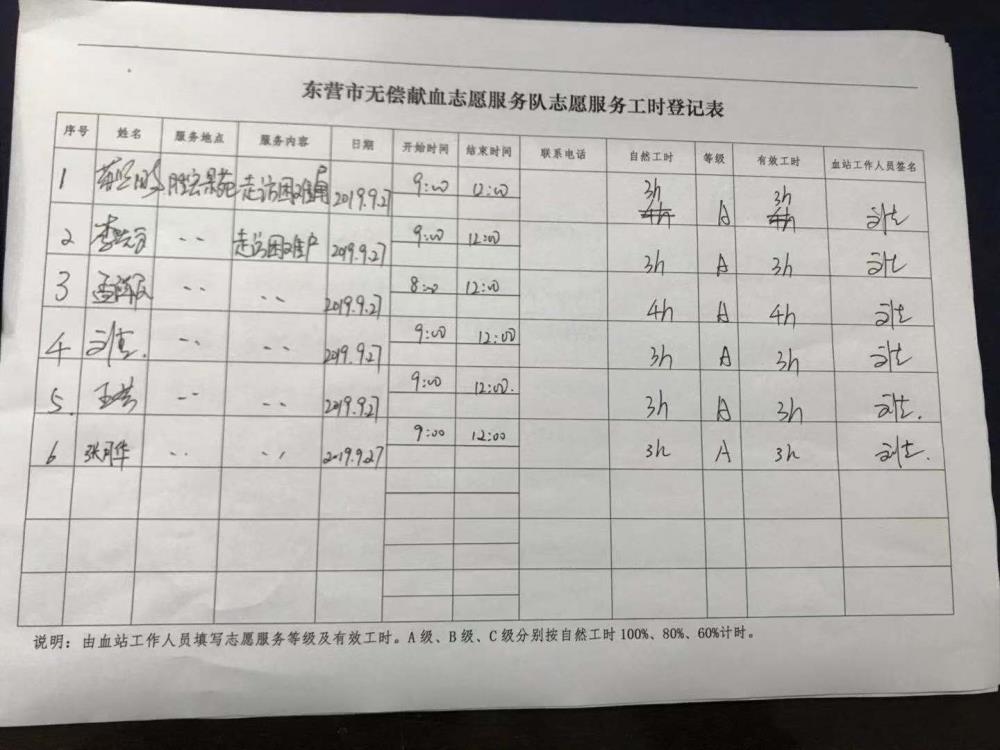 东营市无偿献血志愿服务队志愿服务工时登记表
序号 姓名 服务地点 服务内容 日期 开始时间 结束时间 联系电话 自然工时 等级 有效工时 血站工作人员签名
1 走访困难户 2019.9.27 9:00 12:00 3h 4h A 3h 4h
2 走访困难户 2019.9.27 9:00 12:00 3h A 3h
3 2019.9.27 8:00 12:00 4h A 4h
4 2019.9.27 9:00 12:00 3h A 3h
5. 2019.9.27 9:00 12:00. 3h A 3h
6 2019.9.27 9:00 12:00 3h A 3h
说明：由血站工作人员填写志愿服务等级及有效工时。A级、B级、C级分别按自然工时100%、80%、60%计时。